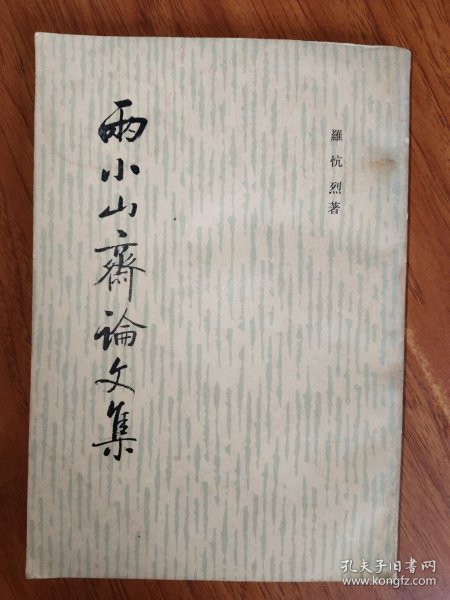 羅忼烈著
兩小山齋論文集
孔夫子旧书网
www.kongfz.com